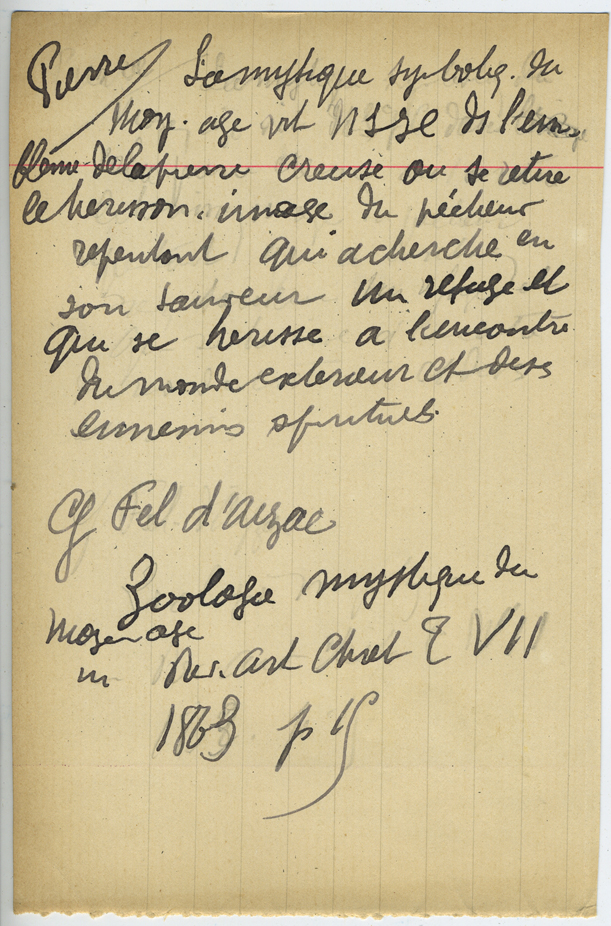 Pierre
La mystique symboliq. du
Moy. age vit NSJC ds l'em-
blème de la pierre creuse ou se retire
le herisson. image du pécheur
repentant qui a cherché en
son sauveur un refuge et
qui se herisse a l'encontre
du monde exterieur et de ses
ennemis spirituels.
Cf Fel d'Arzac
Zoologie mystique du
Moyen age
in Rev. Art Chret T VII
1863 p 15